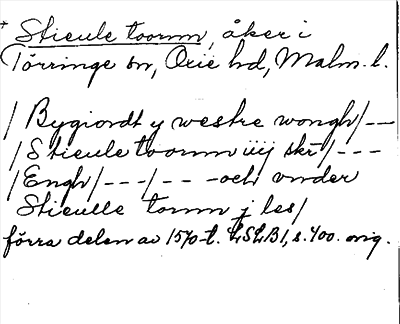 + Stieule toornn, åker i
Törringe sn, Oxie hd, Malm. l.
/ Bygiordt y westre wongh/--
/ Stieule toornn iiij skr/---
/ Engh/---/----och vnder
Stieulle tornn j les/
förra delen av 1570-t. LSLB1, s. 400. orig.